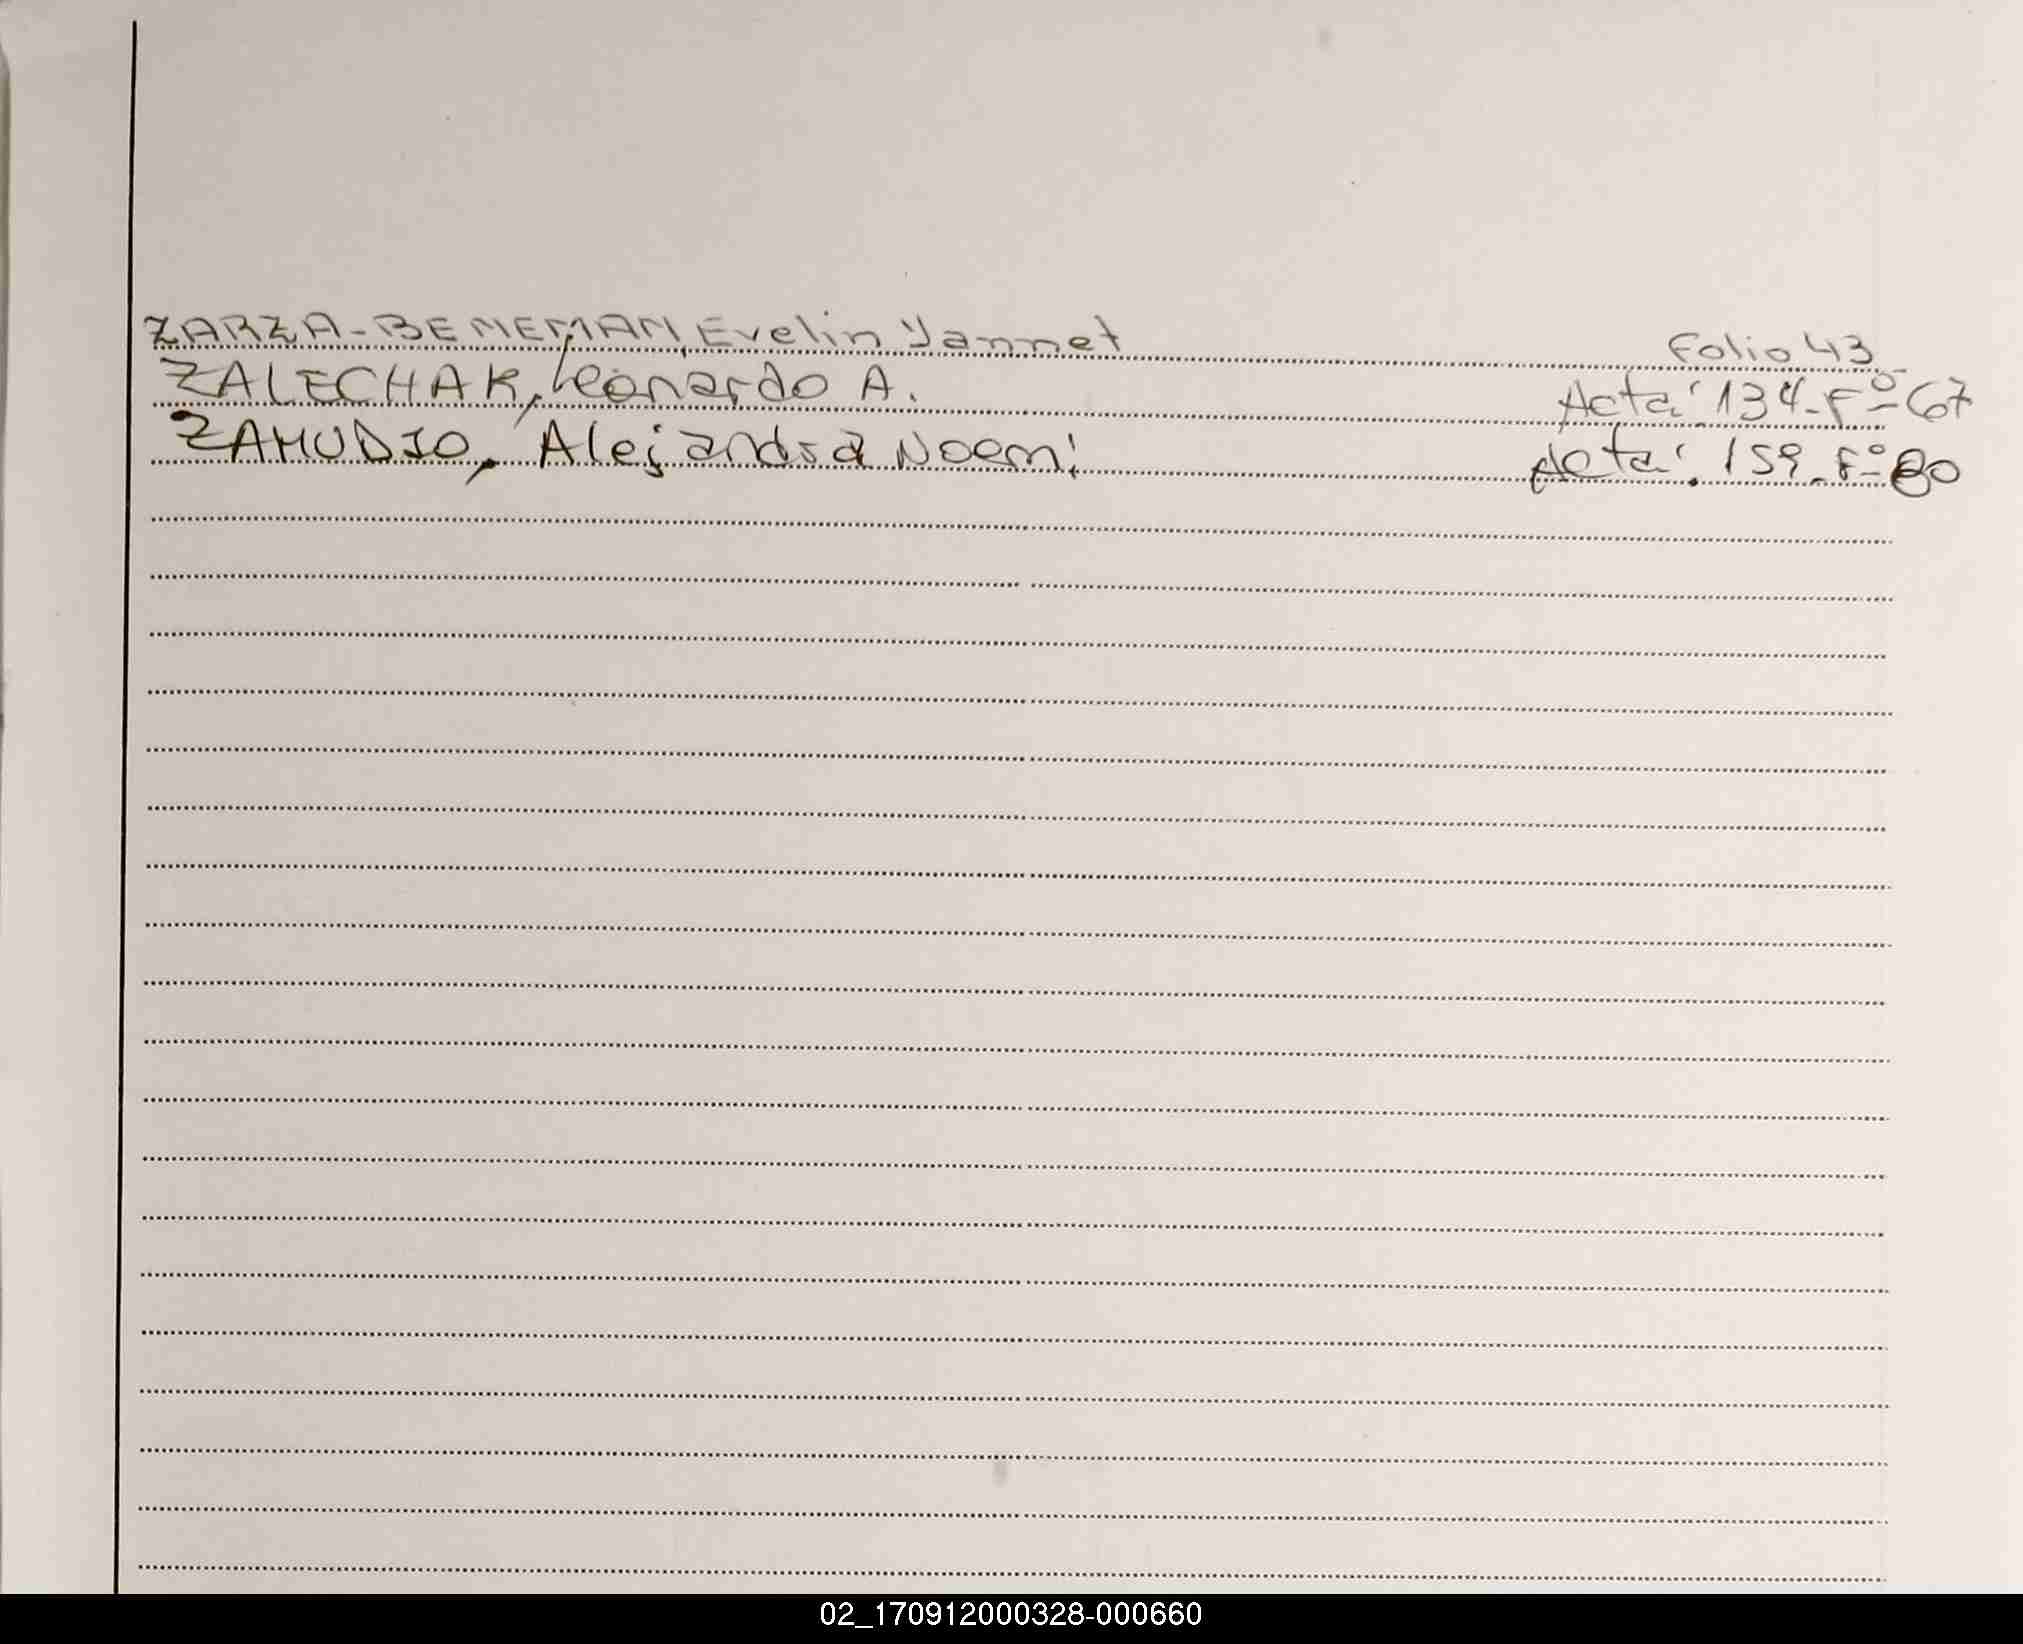 ZARZA-BENEMAN, Evelin Yannet Folio 43
ZALECHAK, Leonardo A. Acta: 134-Fº-67
ZAMUDIO, Alejandra Noemi Acta: 159-Fº-80
02_170912000328-000660